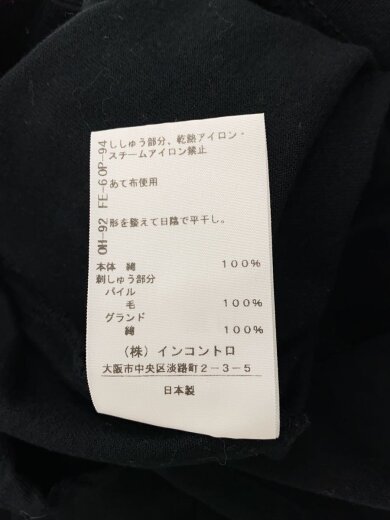 OH-92 FE-6 OP-94
ししゅう部分、乾熱アイロン・
スチームアイロン禁止
あて布使用
形を整えて日陰で平干し。
本体 綿 100%
刺しゅう部分
パイル
毛 100%
グランド
綿 100%
(株)インコントロ
大阪市中央区淡路町2-3-5
日本製